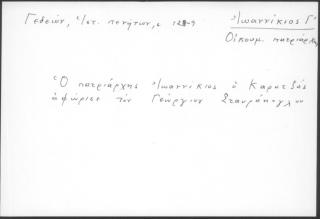 Γεδεών, Ἱστ. πενήτων, σ 128-9
Ἰωαννίκιος Γ'
Οἰκουμ. πατριάρχης
Ὁ πατριάρχης Ἰωαννίκιος ὁ Καρατζᾶς
ἀφώρισε τὸν Γεώργιον Σταυράκογλου